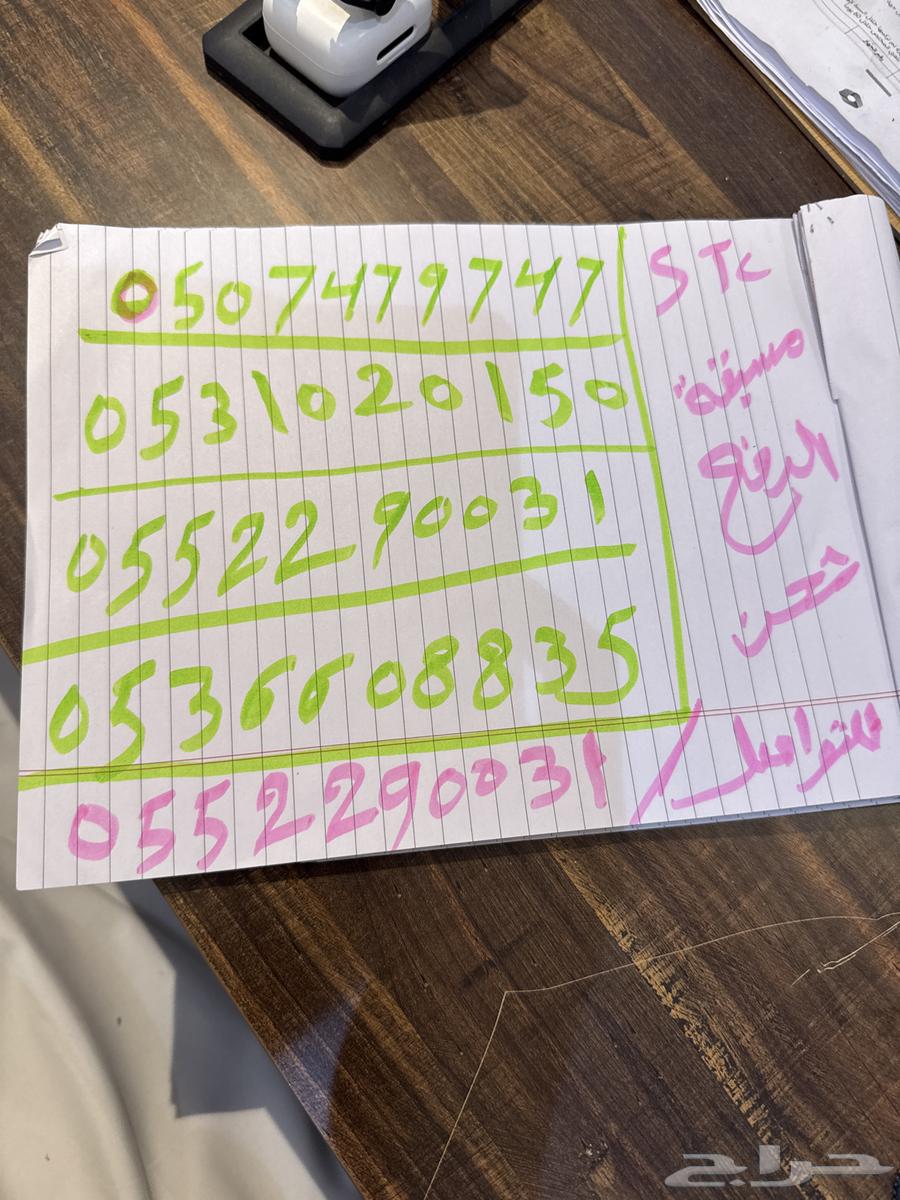 0507479747
STC
0531020150
مسبقة
الدفع
0552290031
شحن
0536608835
للتواصل / 0552290031
حراج